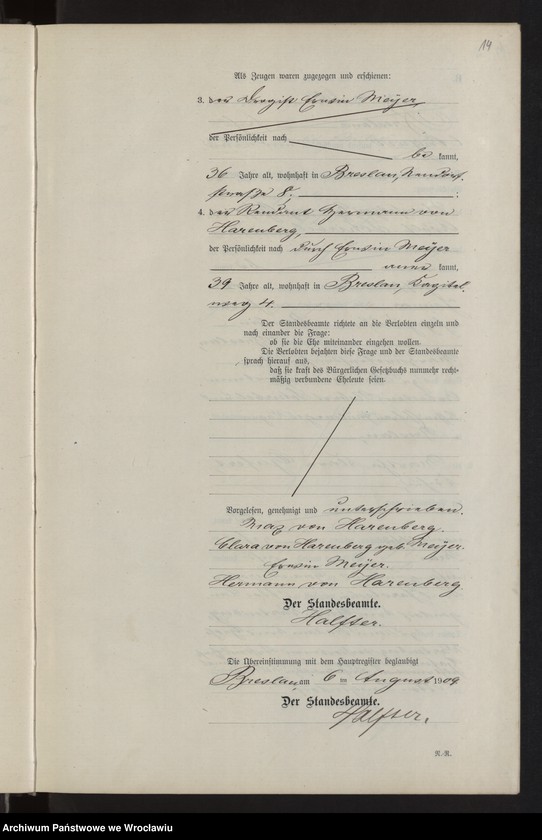 14
Als Zeugen waren zugezogen und erschienen:
3. der Drogist Erwin Meyer,
der Persönlichkeit nach
be kannt,
36 Jahre alt, wohnhaft in Breslau, Neudorf-
straße 8. ;
4. der Rendant Hermann von
Harenberg,
der Persönlichkeit nach durch Erwin Meyer
aner kannt,
39 Jahre alt, wohnhaft in Breslau, Kapitel-
weg 4.
Der Standesbeamte richtete an die Verlobten einzeln und
nach einander die Frage:
ob sie die Ehe miteinander eingehen wollen.
Die Verlobten bejahten diese Frage und der Standesbeamte
sprach hierauf aus,
daß sie kraft des Bürgerlichen Gesetzbuchs nunmehr recht-
mäßig verbundene Eheleute seien.
Vorgelesen, genehmigt und unterschrieben.
Max von Harenberg.
Clara von Harenberg geb. Meyer.
Erwin Meyer.
Hermann von Harenberg.
Der Standesbeamte.
Halfter.
Die Übereinstimmung mit dem Hauptregister beglaubigt
Breslau, am 6 ten August 1909
Der Standesbeamte.
Halfter.
N.-R.
Archiwum Państwowe we Wrocławiu